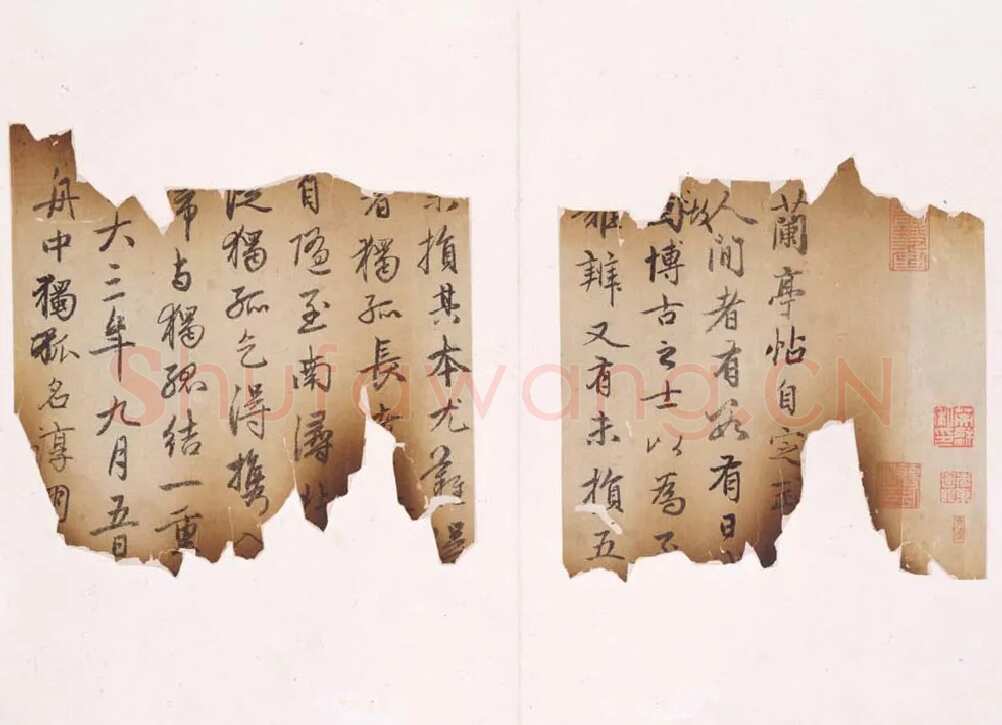 蘭亭帖自定武
人間者有數有日
故博古之士以為
難辨又有未損五
損其本尤難得
者獨孤長老
自隨至南潯北
從獨孤乞得攜入
与獨孤結一重
大三年九月五日
舟中獨孤名淳朋
Shufawang.CN